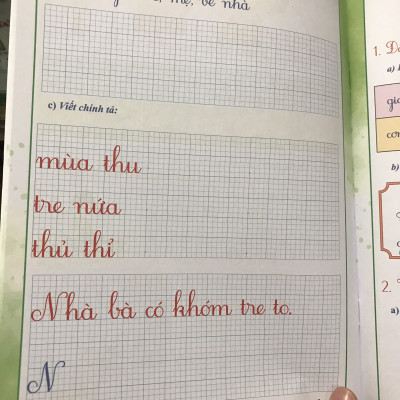 mẹ, bé nhà
c) Viết chính tả:
mùa thu
tre nứa
thủ thỉ
Nhà bà có khóm tre to.
N
1.
a)
b)
2.
a)